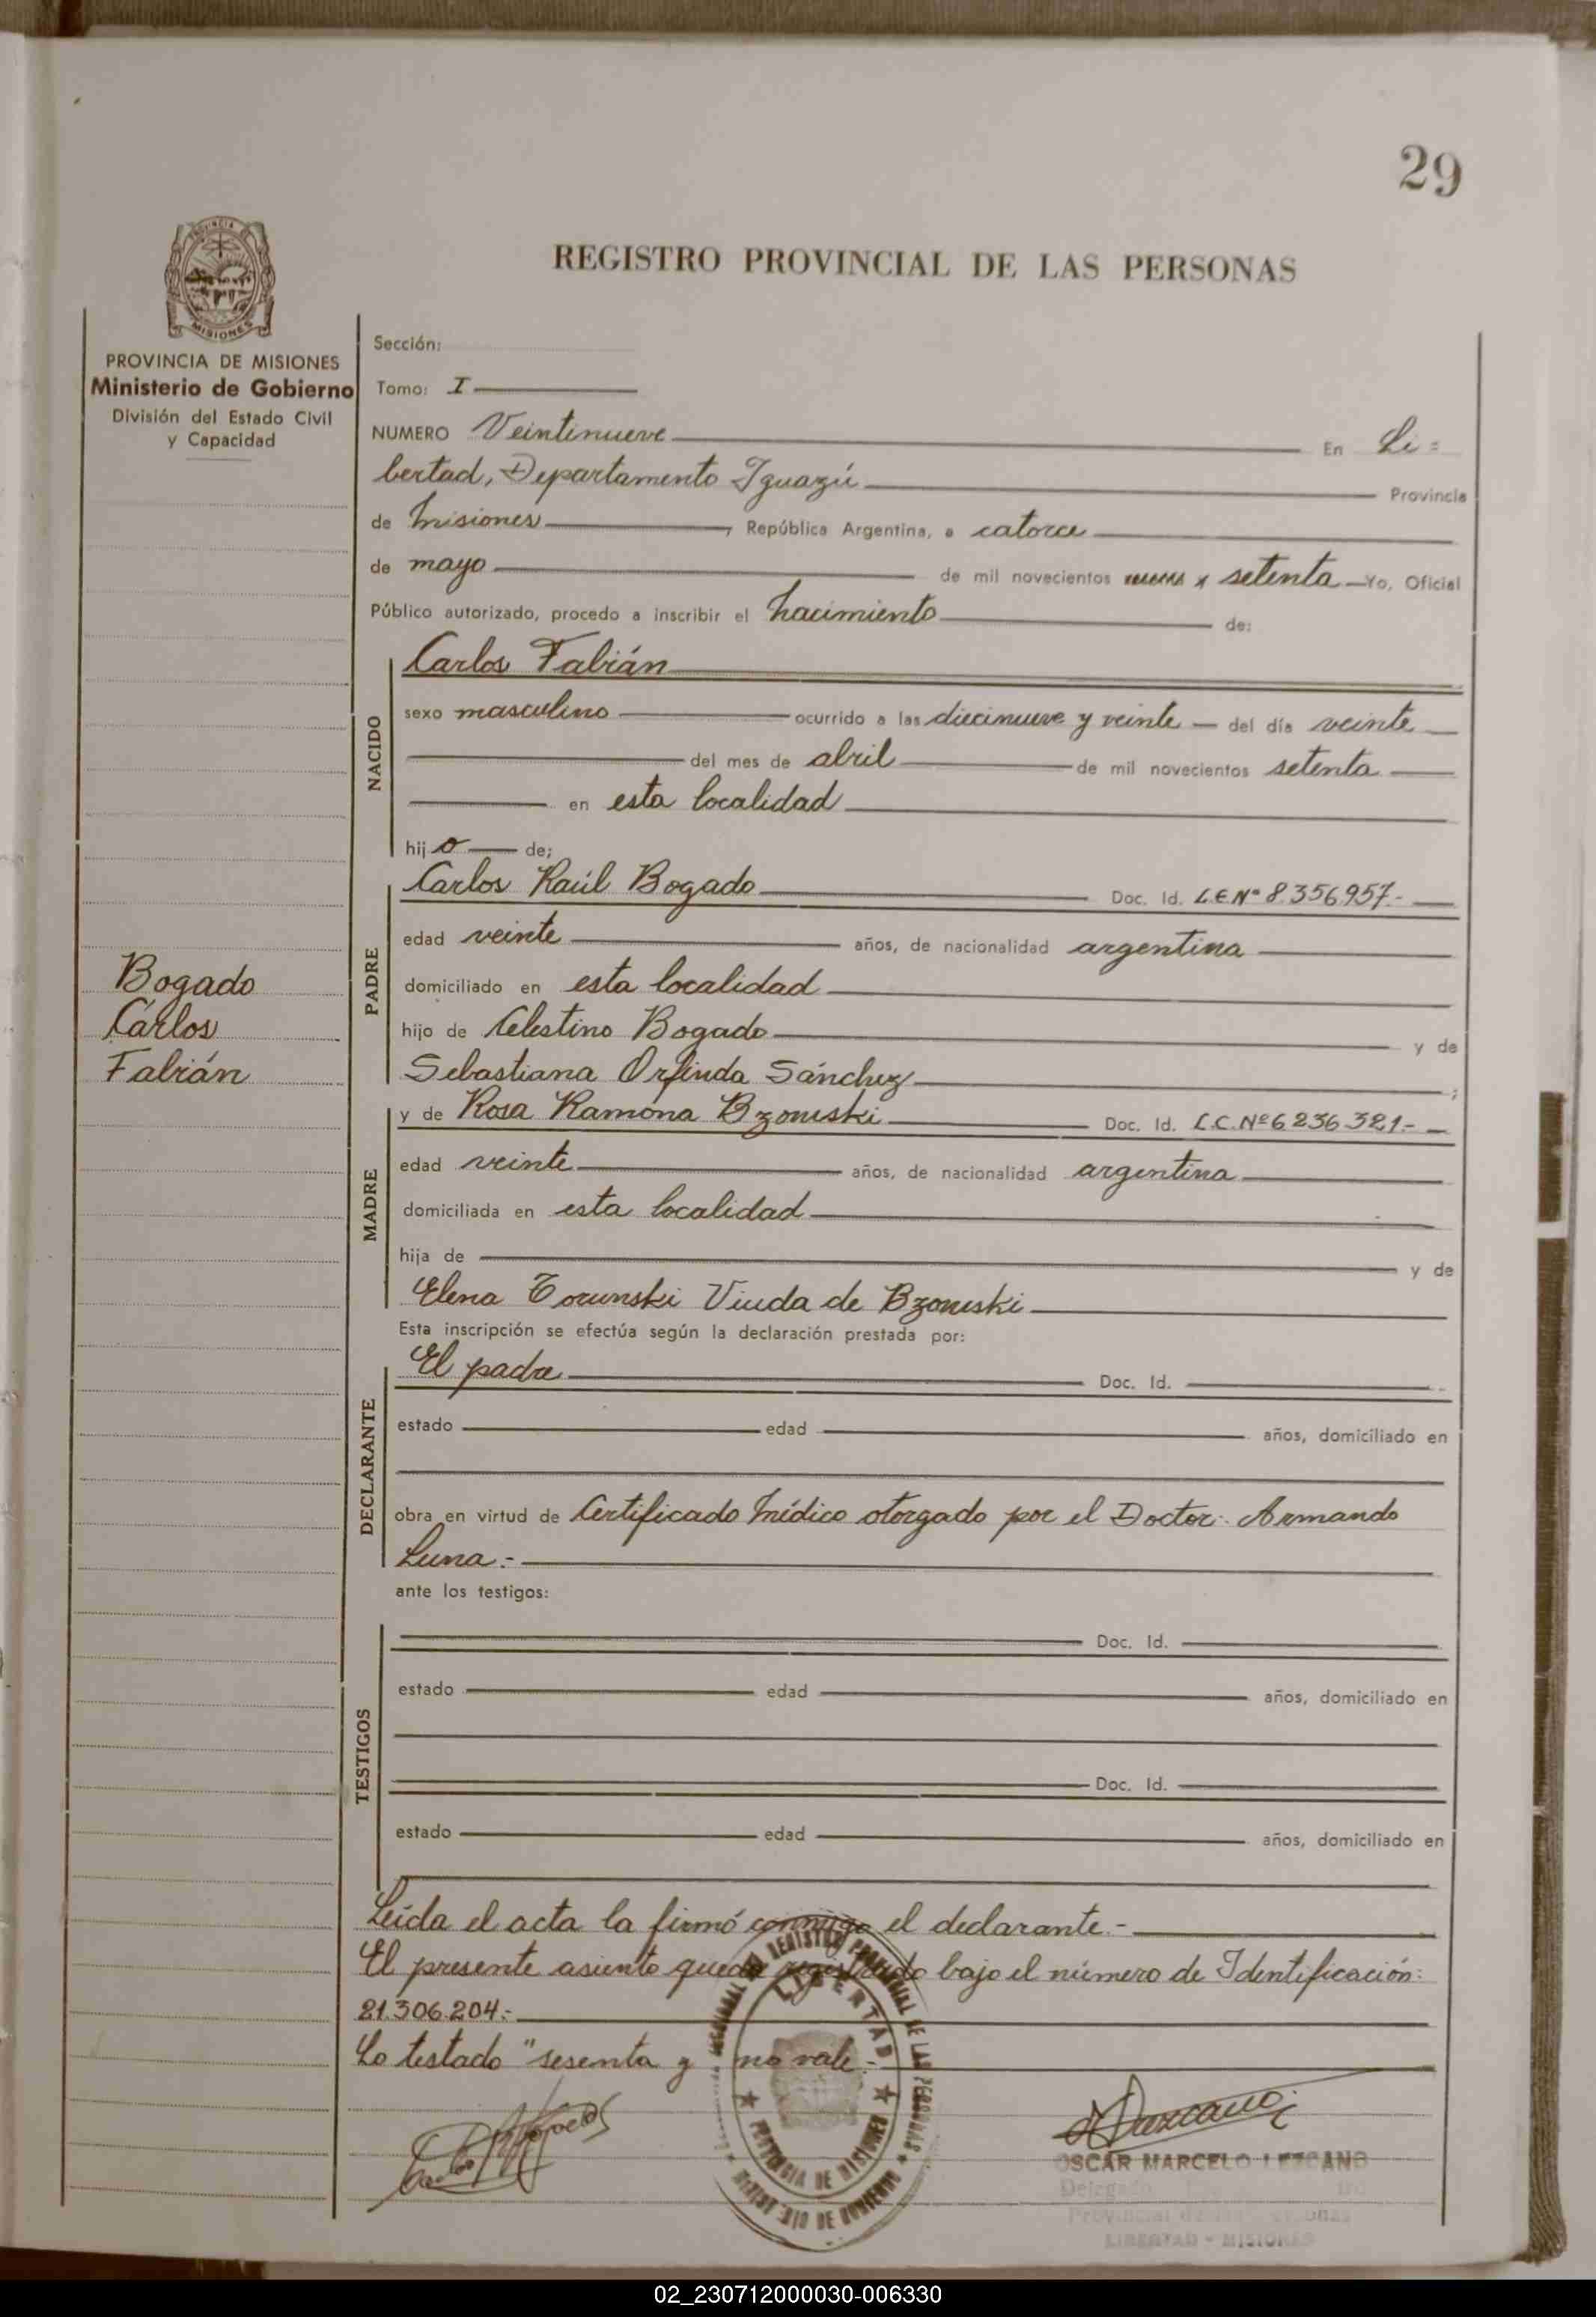 29
REGISTRO PROVINCIAL DE LAS PERSONAS
PROVINCIA DE
MISIONES
PROVINCIA DE MISIONES
Ministerio de Gobierno
División del Estado Civil
y Capacidad
Bogado
Carlos
Fabián
Sección:
Tomo: I
NUMERO Veintinueve En Li=
bertad, Departamento Iguazú Provincia
de Misiones, República Argentina, a catorce
de mayo de mil novecientos setenta Yo, Oficial
Público autorizado, procedo a inscribir el nacimiento de:
NACIDO
Carlos Fabián
sexo masculino ocurrido a las diecinueve y veinte del día veinte
del mes de abril de mil novecientos setenta
en esta localidad
hijo de;
PADRE
Carlos Raúl Bogado Doc. Id. L.E.Nº 8.356.957.-
edad veinte años, de nacionalidad argentina
domiciliado en esta localidad
hijo de Celestino Bogado y de
Sebastiana Orfinda Sánchez;
MADRE
y de Rosa Ramona Bzowski Doc. Id. L.C.Nº 6.236.321.-
edad veinte años, de nacionalidad argentina
domiciliada en esta localidad
hija de y de
Elena Torunski Viuda de Bzowski
Esta inscripción se efectúa según la declaración prestada por:
DECLARANTE
El padre Doc. Id.
estado edad años, domiciliado en
obra en virtud de Certificado Médico otorgado por el Doctor Armando
Luna.-
ante los testigos:
TESTIGOS
Doc. Id.
estado edad años, domiciliado en
Doc. Id.
estado edad años, domiciliado en
Leída el acta la firmó conmigo el declarante.-
El presente asiento queda registrado bajo el número de Identificación:
21.306.204.-
Lo testado "sesenta y no vale.-
LIBERTAD
PROVINCIA DE MISIONES
OSCAR MARCELO LEZCANO
LIBERTAD - MISIONES
02_230712000030-006330